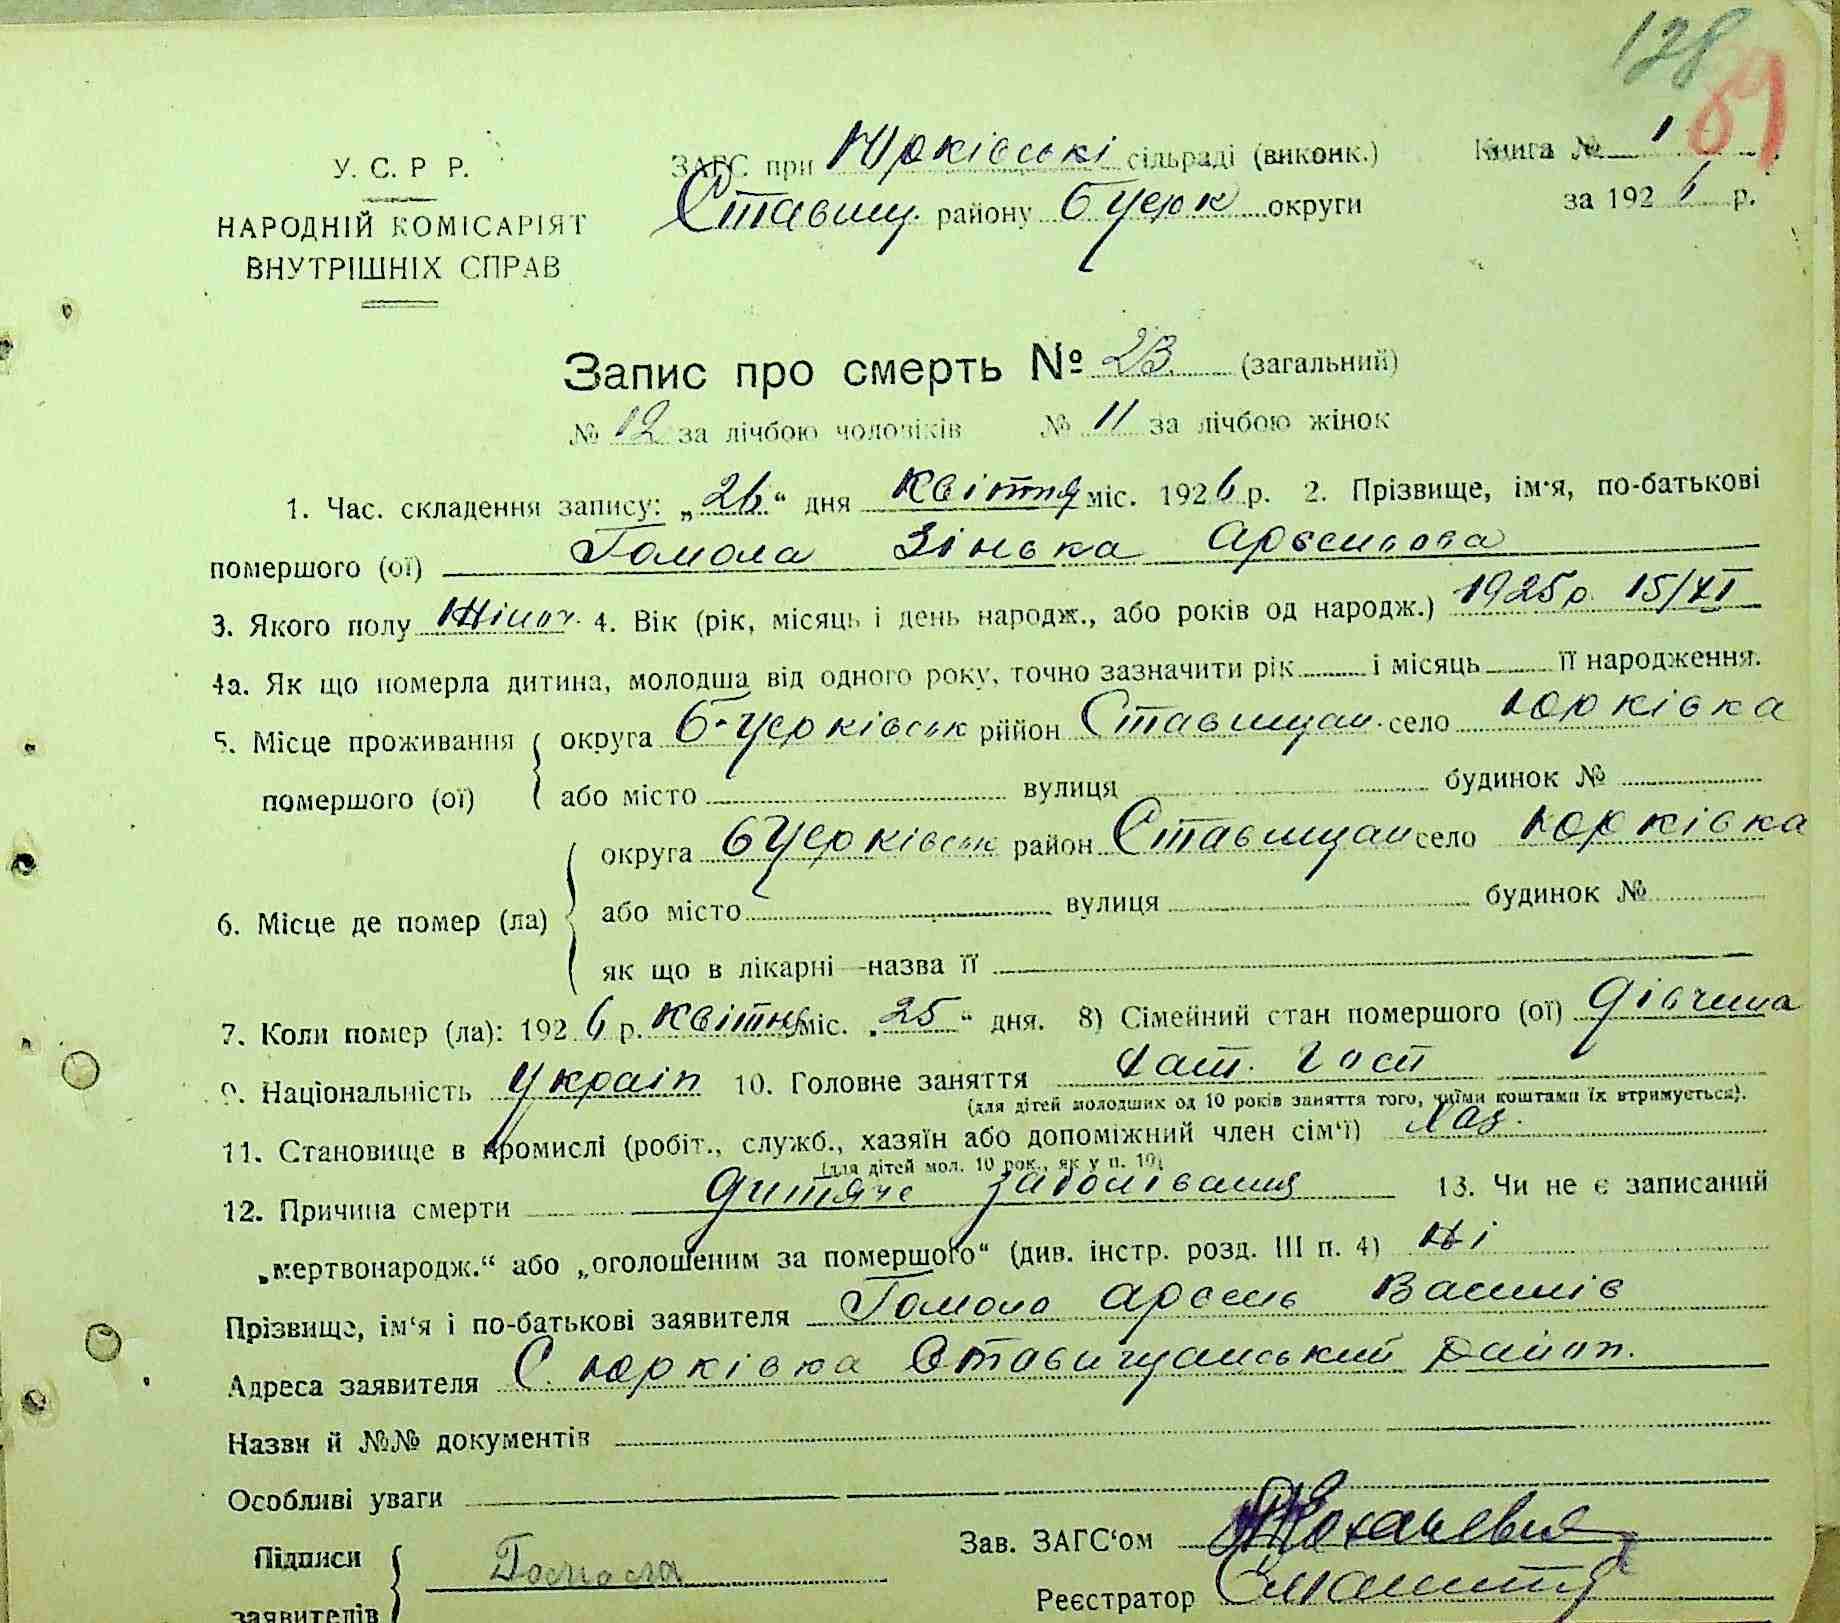 128
89
У. С. Р Р.
НАРОДНІЙ КОМІСАРІЯТ
ВНУТРІШНІХ СПРАВ
ЗАГС при Юрківські сільраді (виконк.)
Ставищ. району БЦерк округи
Книга № 1
за 1926 р.
Запис про смерть № 23 (загальний)
№ 12 за лічбою чоловіків № 11 за лічбою жінок
1. Час. складення запису: „26“ дня Квітня міс. 1926 р. 2. Прізвище, ім'я, по-батькові
помершого (ої) Гомола Зінька Арсенова
3. Якого полу Жіноч. 4. Вік (рік, місяць і день народж., або років од народж.) 1925р. 15/XI
4а. Як що померла дитина, молодша від одного року, точно зазначити рік і місяць її народження.
5. Місце проживання округа Б-Церківськ рййон Ставищан. село Юрківка
помершого (ої) або місто вулиця будинок №
округа БЦерківськ район Ставищан село Юрківка
6. Місце де помер (ла) або місто вулиця будинок №
як що в лікарні—назва її
7. Коли помер (ла): 1926 р. Квітня міс. „25“ дня. 8) Сімейний стан помершого (ої) дівчина
9. Національність Україн 10. Головне заняття
(для дітей молодших од 10 років заняття того, чиїми коштами їх втримується).
11. Становище в промислі (робіт., служб., хазяїн або допоміжний член сім‘ї) хаз.
(для дітей мол. 10 рок., як у п. 10)
12. Причина смерти дитяче заболівання 13. Чи не є записаний
„мертвонародж.“ або „оголошеним за помершого“ (див. інстр. розд. III п. 4) Ні
Прізвище, ім‘я і по-батькові заявителя Гомола Арсень Василів
Адреса заявителя С. Юрківка Ставищанський район.
Назви й №№ документів
Особливі уваги
Підписи Гомола
заявителів
Зав. ЗАГС‘ом
Реєстратор